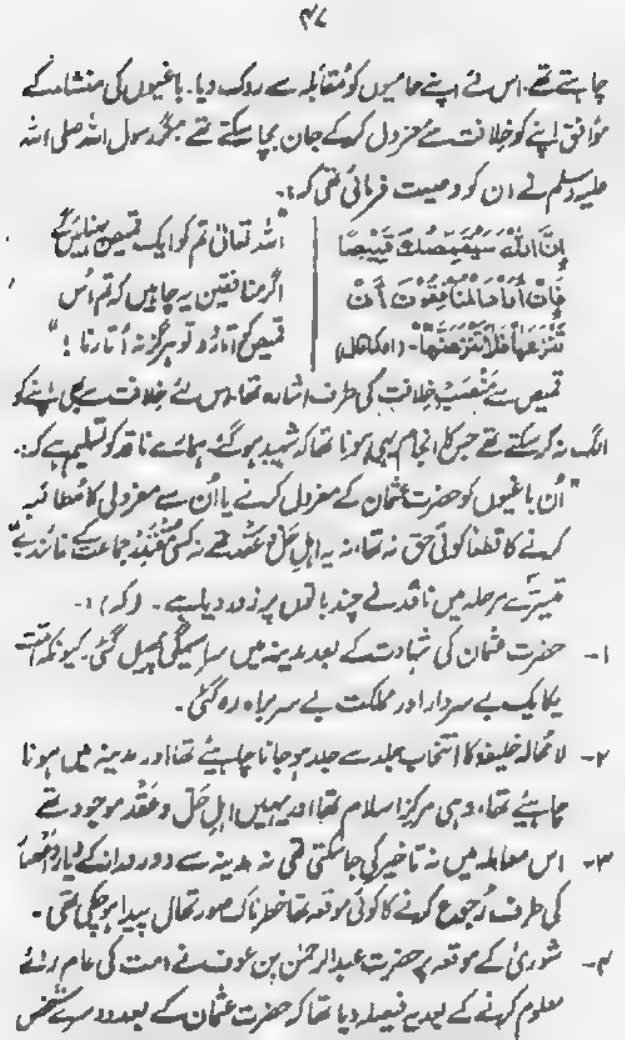 ۴۷
چاہتے تھے۔ اس لئے اپنے حامیوں کو مقابلہ سے روک دیا۔ باغیوں کی منشاء کے
موافق اپنے کو خلافت سے معزول کر کے جان بچا سکتے تھے مگر رسول اللہ صلی اللہ
علیہ وسلم نے ان کو وصیت فرمائی تھی کہ :۔
اِنَّ اللّٰہَ سَیُقَمِّصُکَ قَمِیْصًا
فَاِنْ اَرَادَ الْمُنَافِقُوْنَ اَنْ
تَنْزِعَہَا فَلَا تَنْزِعَنَّہَا۔ (الکامل)
"اللہ تعالیٰ تم کو ایک قمیص پہنائیں گے
اگر منافقین یہ چاہیں کہ تم اُس
قمیص کو اتار دو تو ہرگز نہ اُتارنا !"
قمیص سے مَنْصَبِ خلافت کی طرف اشارہ تھا، اس لئے خلافت سے بھی اپنے کو
الگ نہ کر سکتے تھے جس کا انجام یہی ہونا تھا کہ شہید ہو گئے۔ ہمارے ناقد کو تسلیم ہے کہ :۔
"اُن باغیوں کو حضرت عثمان کے معزول کرنے یا اُن سے معزولی کا مُطالبہ
کرنے کا قطعاً کوئی حق نہ تھا، نہ یہ اہلِ حَلّ و عَقْد تھے نہ کسی مُعْتَدْبِہٖ جماعت کے نمائندے"
تیسرے مرحلہ میں ناقد نے چند باتوں پر زور دیا ہے۔ (کہ) :۔
۱۔ حضرت عثمان کی شہادت کے بعد مدینہ میں سراسیمگی پھیل گئی۔ کیونکہ اُمّت
یکایک بے سردار اور مملکت بے سربراہ رہ گئی۔
۲۔ لامحالہ خلیفہ کا انتخاب جلد سے جلد ہو جانا چاہیئے تھا اور مدینہ میں ہونا
چاہیئے تھا، وہی مرکزِ اسلام تھا اور یہیں اہلِ حَلّ و عَقْد موجود تھے
۳۔ اس معاملہ میں نہ تاخیر کی جا سکتی تھی نہ مدینہ سے دور دراز کے دیار و اَمْصار
کی طرف رُجوع کرنے کا کوئی موقعہ تھا خطرناک صورتحال پیدا ہو چکی تھی۔
۴۔ شوریٰ کے موقعہ پر حضرت عبدالرحمٰن بن عوف نے امت کی عام رائے
معلوم کرنے کے بعد یہ فیصلہ دیا تھا کہ حضرت عثمان کے بعد دوسرے شخص